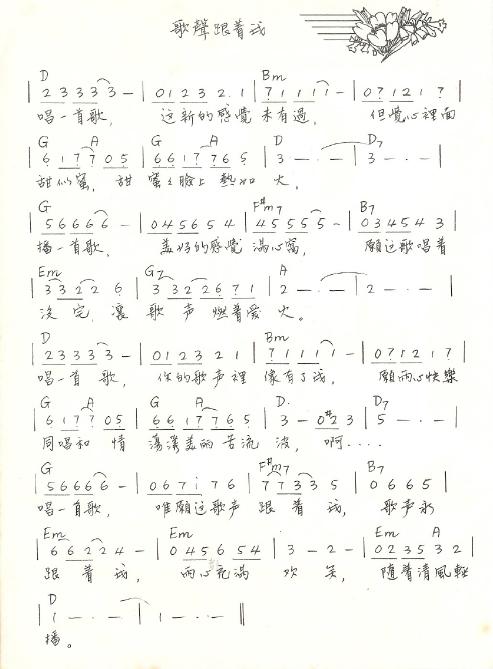 歌聲跟着我
D Bm
| 2 3 3 3 3 – | 0 1 2 3 2.1 | 7 1 1 1 1 – | 0 7 1 2 1 7 |
唱一首歌, 这新的感覺 未有過, 但覺心裡面
G A G A D D7
| 6 1 7 7 0 5 | 6 6 1 7 7 6 5 | 3 – · – | 3 – · – |
甜似蜜, 甜蜜 臉上熱如火,
G F#m7 B7
| 5 6 6 6 6 – | 0 4 5 6 5 4 | 4 5 5 5 5 – | 0 3 4 5 4 3 |
播一首歌, 美好的感覺 滿心窩, 願这歌唱着
Em G7 A
| 3 3 2 2 6 | 3 3 2 2 6 7 1 | 2 – · – | 2 – · – |
沒完, 讓歌声燃着愛火。
D Bm
| 2 3 3 3 3 – | 0 1 2 3 2 1 | 7 1 1 1 1 – | 0 7 1 2 1 7 |
唱一首歌, 你的歌声裡 像有了我, 願兩心快樂
G A G A D D7
| 6 1 7 7 0 5 | 6 6 1 7 7 6 5 | 3 – 0 #2 3 | 5 – · – |
同唱和 情蕩漾美的苦流波, 啊....
G F#m7 B7
| 5 6 6 6 6 – | 0 6 7 1 7 6 | 7 7 3 3 5 | 0 6 6 5 |
唱一首歌, 唯願这歌声 跟着我, 歌声永
Em Em Em A
| 6 6 2 2 4 – | 0 4 5 6 5 4 | 3 – 2 – | 0 2 3 5 3 2 |
跟着我, 兩心充滿 欢笑, 随着清風輕
D
| 1 – · – | 1 – · – ||
播。